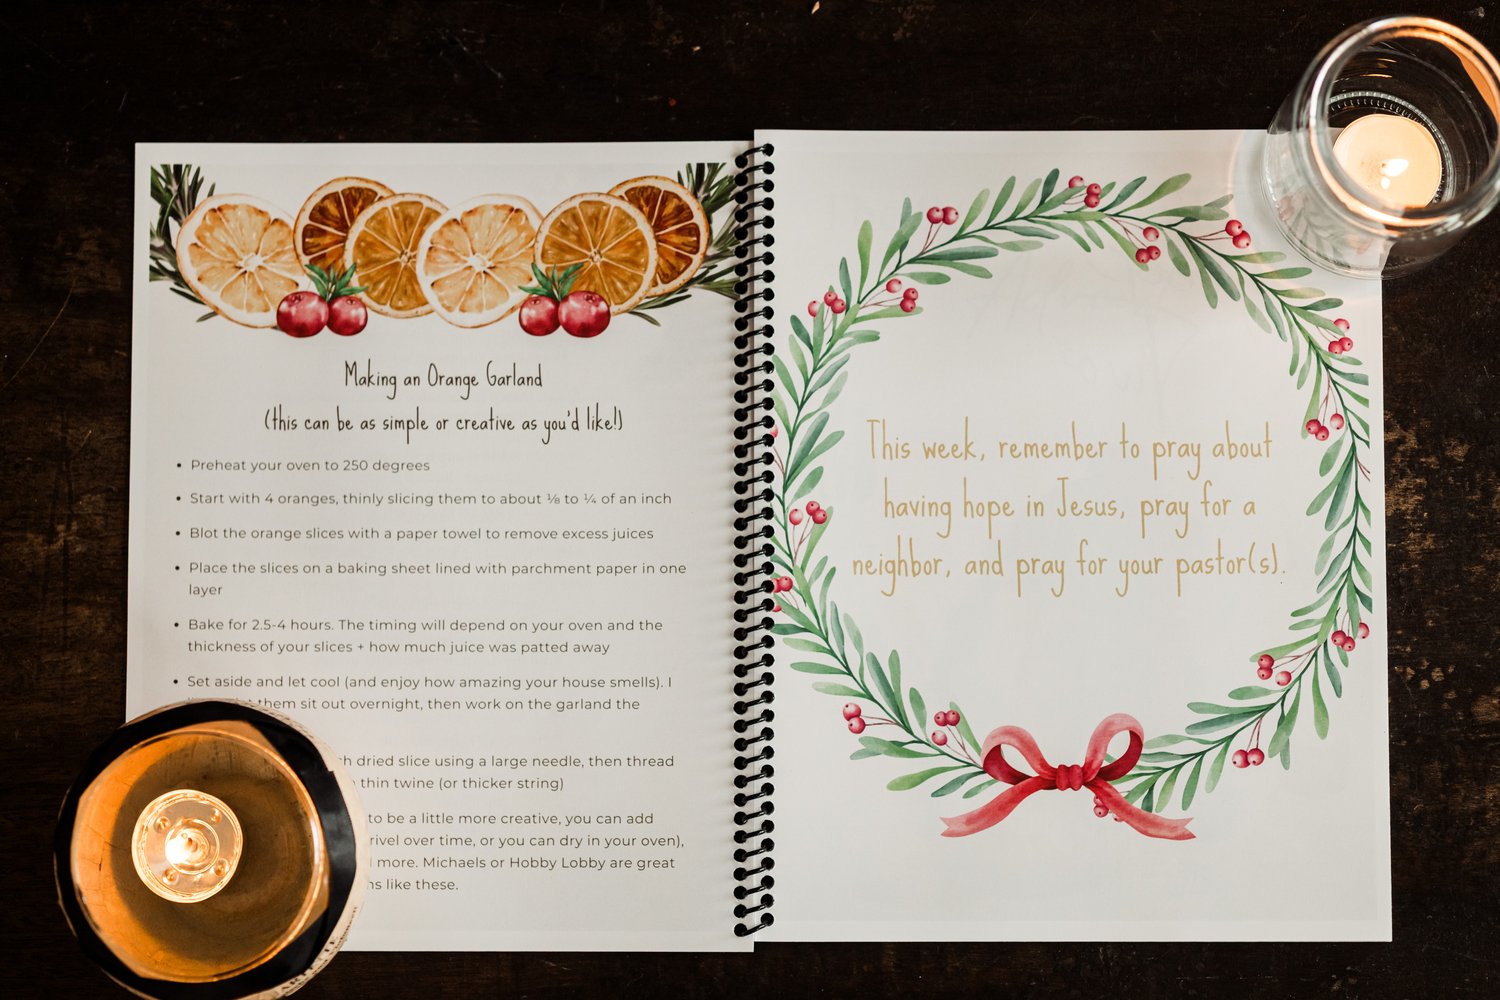 Making an Orange Garland
(this can be as simple or creative as you'd like!)
• Preheat your oven to 250 degrees
• Start with 4 oranges, thinly slicing them to about ⅛ to ¼ of an inch
• Blot the orange slices with a paper towel to remove excess juices
• Place the slices on a baking sheet lined with parchment paper in one
layer
• Bake for 2.5-4 hours. The timing will depend on your oven and the
thickness of your slices + how much juice was patted away
• Set aside and let cool (and enjoy how amazing your house smells). I
them sit out overnight, then work on the garland the
dried slice using a large needle, then thread
thin twine (or thicker string)
to be a little more creative, you can add
over time, or you can dry in your oven),
more. Michaels or Hobby Lobby are great
like these.
This week, remember to pray about
having hope in Jesus, pray for a
neighbor, and pray for your pastor(s).